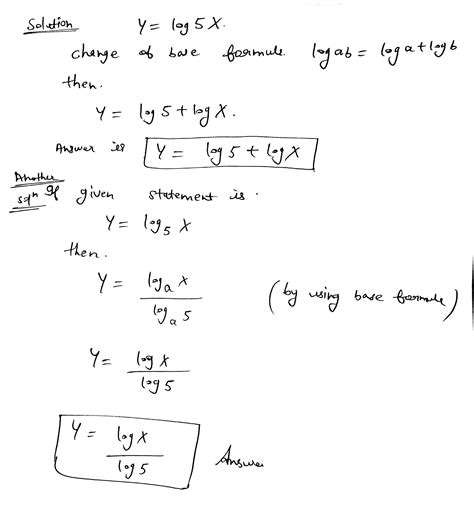 Solution Y = log 5 X.
change of base formula log ab = log a + log b
then.
Y = log 5 + log X.
Answer is Y = log 5 + log X
Another
sqn of given statement is.
Y = log₅ X
then.
Y = logₐ x / logₐ 5 (by using base formule)
Y = log X / log 5
Y = log X / log 5 Answer